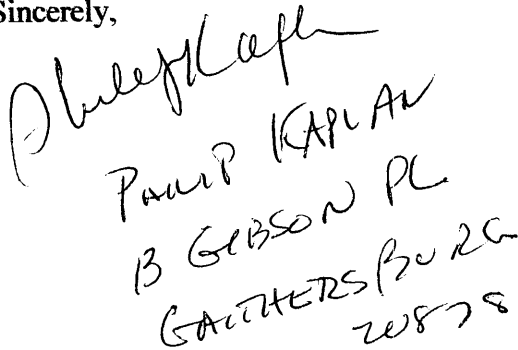 Sincerely,
Philip Kapl
PHILIP KAPLAN
13 GIBSON PL
GAITHERSBURG
20878